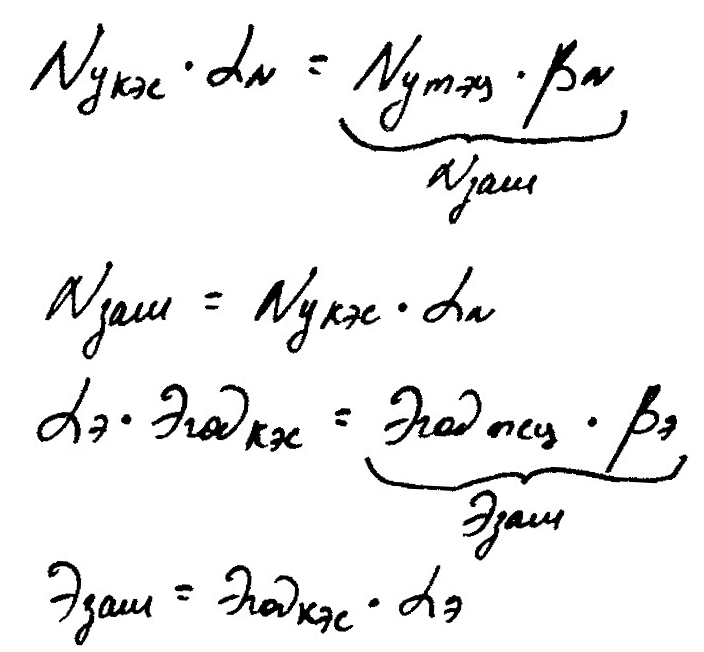 Nукэс · αN = Nутэц · βN
Nзам
Nзам = Nукэс · αN
αэ · Эгод кэс = Эгод тэц · βэ
Эзам
Эзам = Эгод кэс · αэ